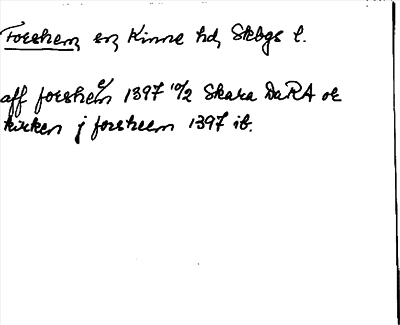 Forshem, sn, Kinne hd, Skbgs l.
aff forshem 1397 10/2 Skara DaRA or
kirken j forsheem 1397 ib.